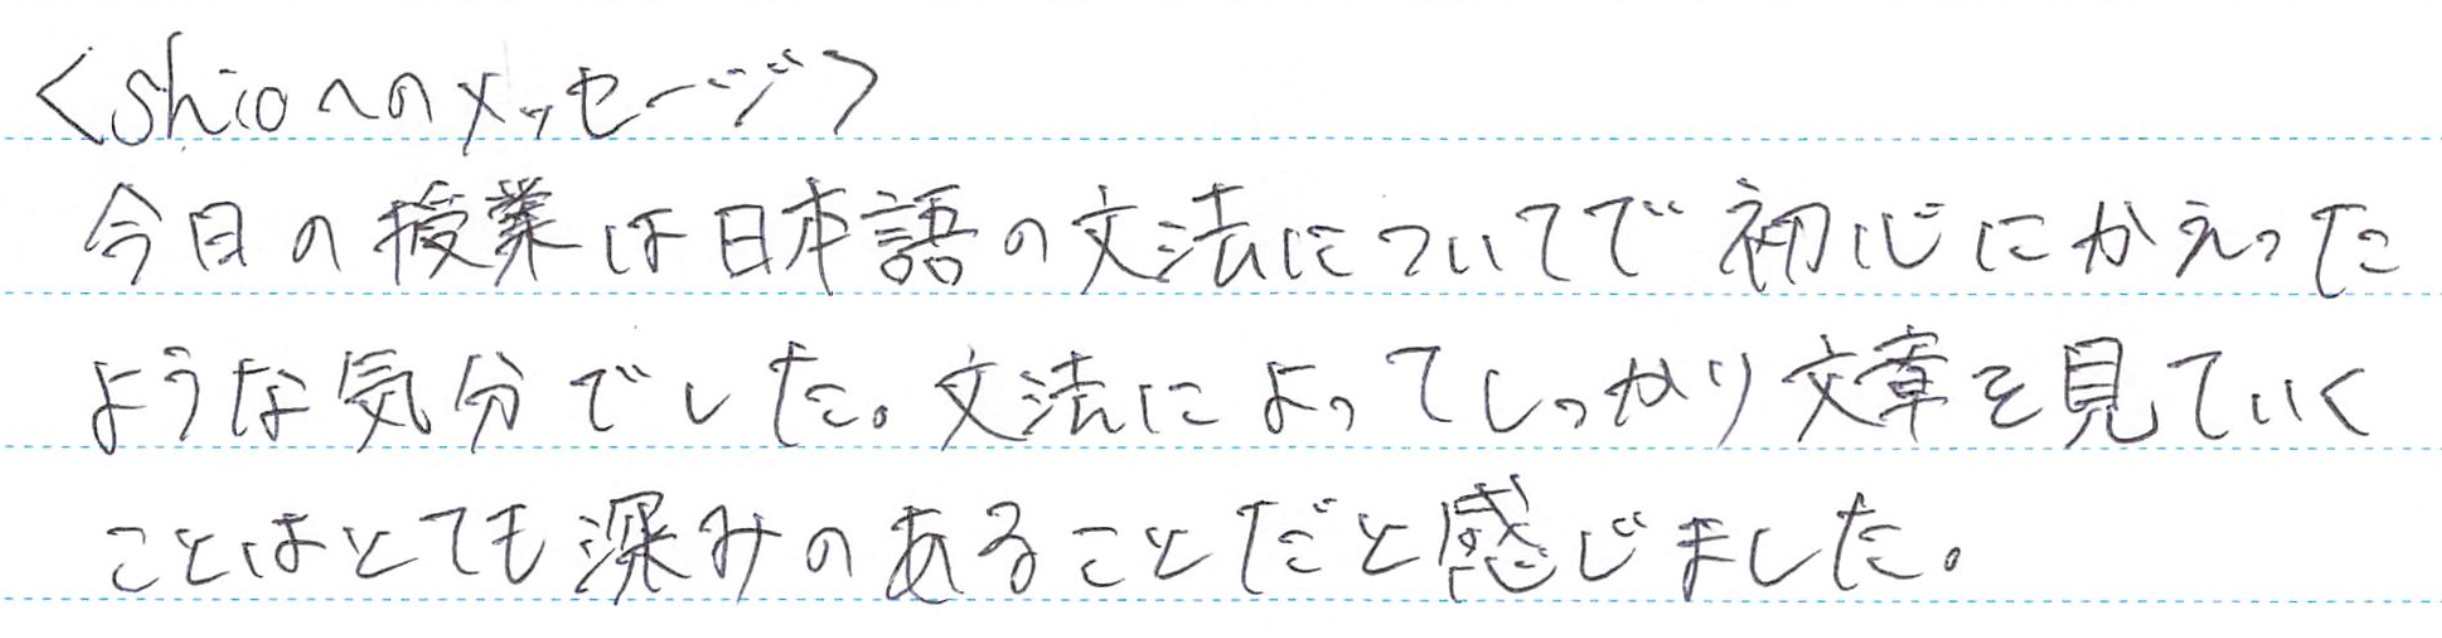 <shioへのメッセージ>
今日の授業は日本語の文法についてで初心にかえった
ような気分でした。文法によってしっかり文章を見ていく
ことはとても深みのあることだと感じました。